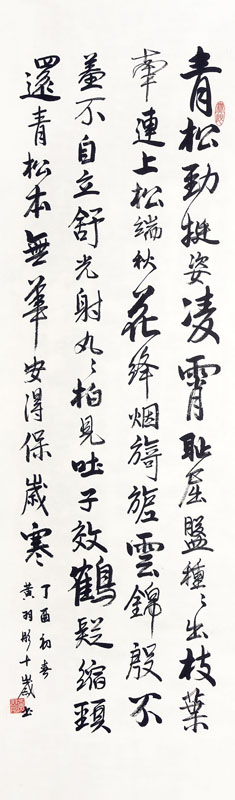 青松勁挺姿凌霄恥屈盤種〻出枝葉
牽連上松端秋花絳烟旖旎雲錦殷不
羞不自立舒光射丸〻柏見吐子效鶴疑縮頸
還青松本無華安得保歲寒
丁酉初春
黄羽彤十歲書